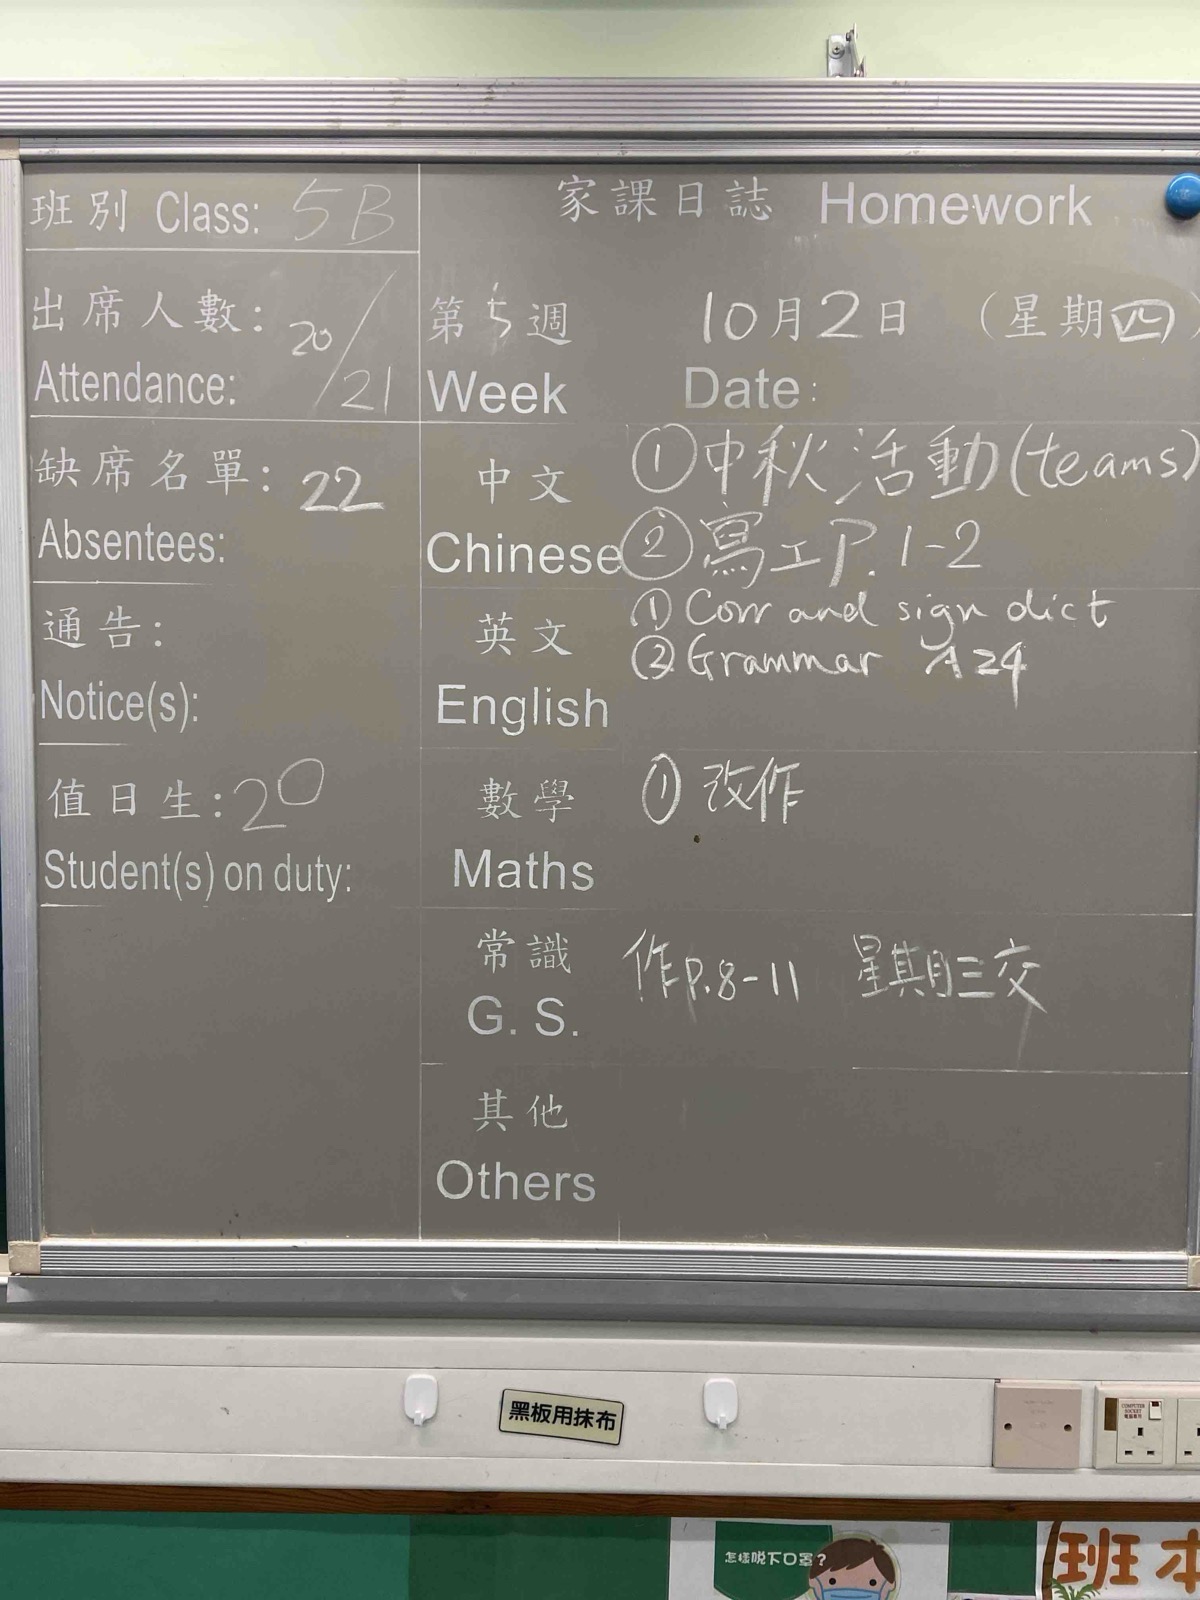 班別 Class: 5B
家課日誌 Homework
出席人數: 20/21
Attendance:
第5週 10月2日 (星期四)
Week Date:
缺席名單: 22
Absentees:
中文
Chinese
①中秋活動(teams)
②寫工P.1-2
通告:
Notice(s):
英文
English
① Corr and sign dict
② Grammar A24
值日生:20
Student(s) on duty:
數學
Maths
① 改作
常識
G. S.
作P.8-11 星期三交
其他
Others
黑板用抹布
COMPUTER
SOCKET
電腦專用
怎樣脫下口罩?
班本